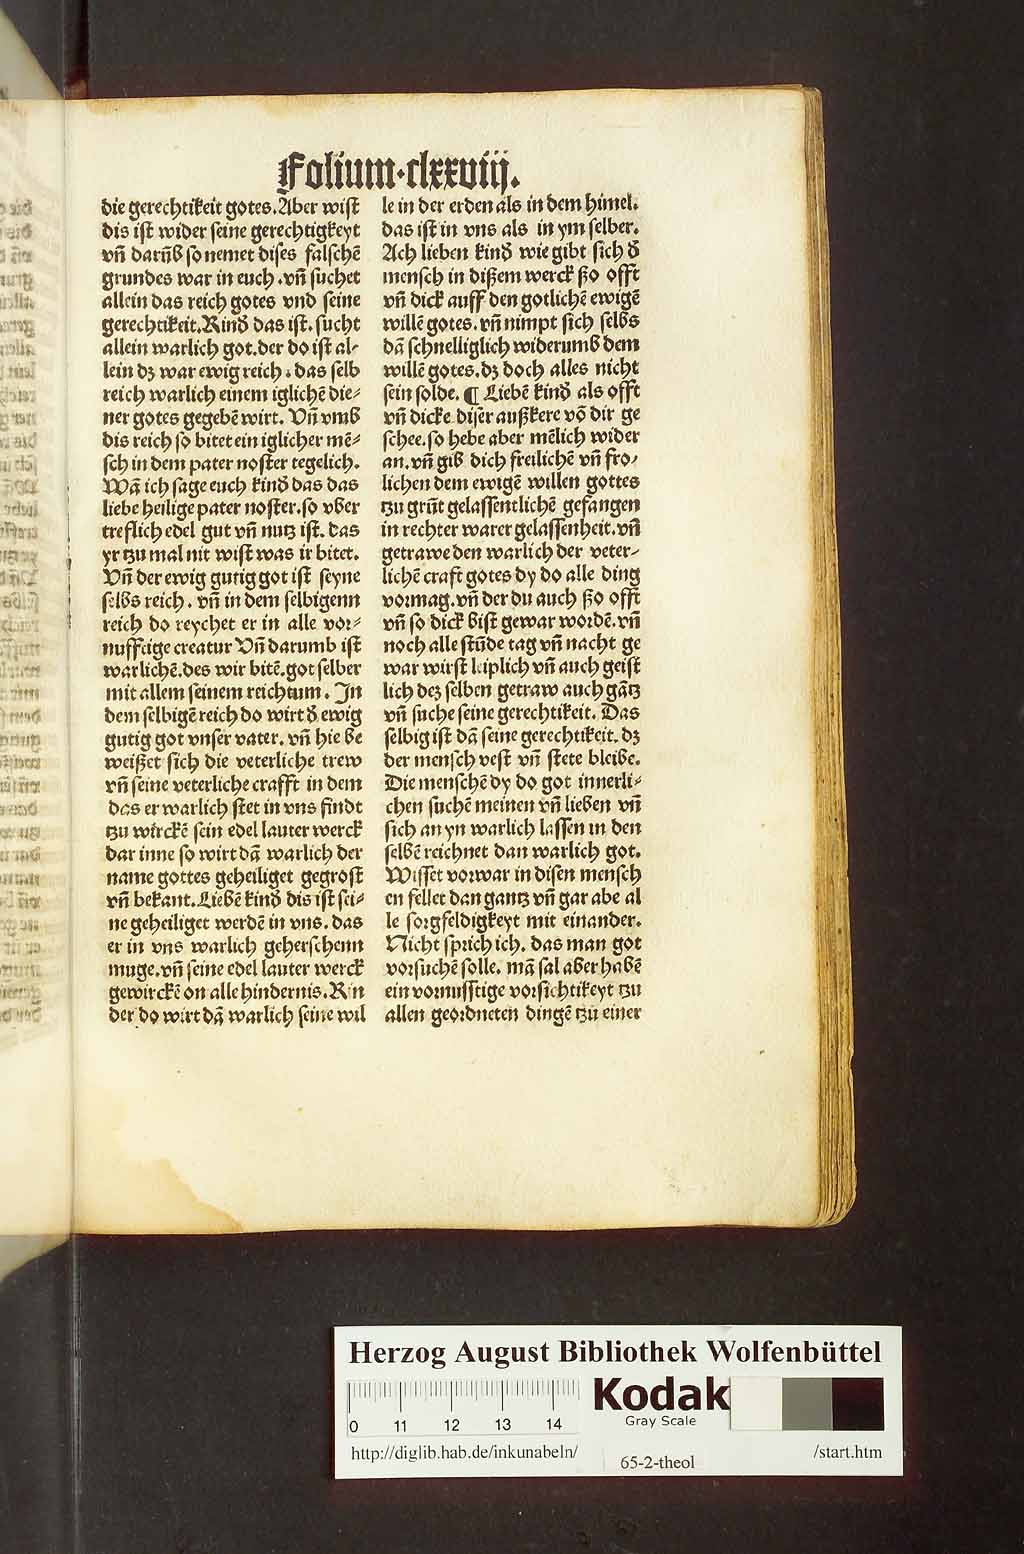 Folium·clxxviij.
die gerechtikeit gotes. Aber wist
dis ist wider seine gerechtigkeyt
vn̄ darūb so nemet dises falschē
grundes war in euch. vn̄ suchet
allein das reich gotes vnd seine
gerechtikeit. Kinđ das ist. sucht
allein warlich got. der do ist al⸗
lein dz war ewig reich. das selb
reich warlich einem iglichē die⸗
ner gotes gegebē wirt. Vn̄ vmb
dis reich so bitet ein iglicher mē⸗
sch in dem pater noster tegelich.
Wā ich sage euch kinđ das das
liebe heilige pater noster. so vber
treflich edel gut vn̄ nutz ist. das
yr tzu mal nit wist was ir bitet.
Vn̄ der ewig gutig got ist seyne
selbs reich. vn̄ in dem selbigenn
reich do reychet er in alle vor⸗
nufftige creatur Vn̄ darumb ist
warlichē. des wir bitē. got selber
mit allem seinem reichtum. In
dem selbigē reich do wirt đ ewig
gutig got vnser vater. vn̄ hie be
weißet sich die veterliche trew
vn̄ seine veterliche crafft in dem
das er warlich stet in vns findt
tzu wirckē sein edel lauter werck
dar inne so wirt dā warlich der
name gottes geheiliget gegrost
vn̄ bekant. Liebē kinđ dis ist sei⸗
ne geheiliget werdē in vns. das
er in vns warlich geherschenn
muge. vn̄ seine edel lauter werck
gewirckē on alle hindernis. Kin
der do wirt dā warlich seine wil
le in der erden als in dem himel.
das ist in vns als in ym selber.
Ach lieben kinđ wie gibt sich đ
mensch in dißem werck ßo offt
vn̄ dick auff den gotlichē ewigē
willē gotes. vn̄ nimpt sich selbs
dā schnelliglich widerumb dem
willē gotes. dz doch alles nicht
sein solde. ¶ Liebē kinđ als offt
vn̄ dicke diser außkere vō dir ge
schee. so hebe aber mēlich wider
an. vn̄ gib dich freilichē vn̄ fro⸗
lichen dem ewigē willen gottes
tzu grūt gelassentlichē gefangen
in rechter warer gelassenheit. vn̄
getrawe den warlich der veter⸗
lichē craft gotes dy do alle ding
vormag. vn̄ der du auch ßo offt
vn̄ so dick bist gewar wordē. vn̄
noch alle stūde tag vn̄ nacht ge
war wirst leiplich vn̄ auch geist
lich dez selben getraw auch gātz
vn̄ suche seine gerechtikeit. Das
selbig ist dā seine gerechtikeit. dz
der mensch vest vn̄ stete bleibe.
Die menschē dy do got innerli⸗
chen suchē meinen vn̄ lieben vn̄
sich an yn warlich lassen in den
selbē reichnet dan warlich got.
Wisset vorwar in disen mensch
en fellet dan gantz vn̄ gar abe al
le sorgfeldigkeyt mit einander.
Nicht sprich ich. das man got
vorsuchē solle. mā sal aber habē
ein vornufftige vorsichtikeyt tzu
allen geordneten dingē tzu einer
Herzog August Bibliothek Wolfenbüttel
Kodak
Gray Scale
0 11 12 13 14
http://diglib.hab.de/inkunabeln/ 65-2-theol /start.htm